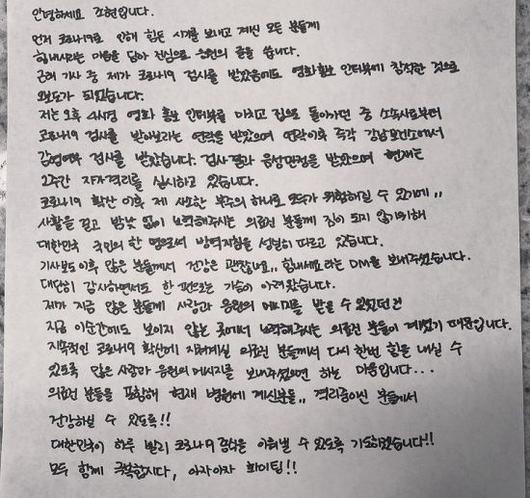 안녕하세요 조현입니다.
먼저 코로나19로 인해 힘든 시기를 보내고 계신 모든 분들께
힘내시라는 마음을 담아 진심으로 응원의 글을 씁니다.
근래 기사 중 제가 코로나19 검사를 받았음에도 영화홍보 인터뷰에 참석한 것으로
오보도가 되었습니다.
저는 오후 4시경 영화 홍보 인터뷰를 마치고 집으로 돌아가던 중 소속사로부터
코로나19 검사를 받아보라는 연락을 받았으며 연락이후 즉각 강남보건소에서
감염여부 검사를 받았습니다. 검사결과 음성판정을 받았으며 현재는
2주간 자가격리를 실시하고 있습니다.
코로나19 확산 이후 제 사소한 부주의 하나로 모두가 위험해질 수 있기에,,
사활을 걸고 밤낮 없이 노력해주시는 의료진 분들께 짐이 되지 않기위해
대한민국 국민의 한 명으로서 방역지침을 성실히 따르고 있습니다.
기사보도이후 많은 분들께서 건강은 괜찮냐고,, 힘내세요 라는 DM을 보내주셨습니다.
대단히 감사하면서도 한 편으로는 가슴이 아려왔습니다.
제가 지금 많은 분들께 사랑과 응원의 메시지를 받을 수 있었던건
지금 이순간에도 보이지 않는 곳에서 노력해주시는 의료진 분들이 계셨기 때문입니다.
지속적인 코로나19 확산에 지쳐계실 의료진 분들께서 다시 한번 힘을 내실 수
있도록 많은 사랑과 응원의 메시지를 보내주셨으면 하는 마음입니다...
의료진 분들을 포함해 현재 병원에 계신분들,, 격리중이신 분들께서
건강하실 수 있도록!!
대한민국이 하루 빨리 코로나19 종식을 이뤄낼 수 있도록 기도하겠습니다!!
모두 함께 극복합시다, 아자아자 화이팅!!